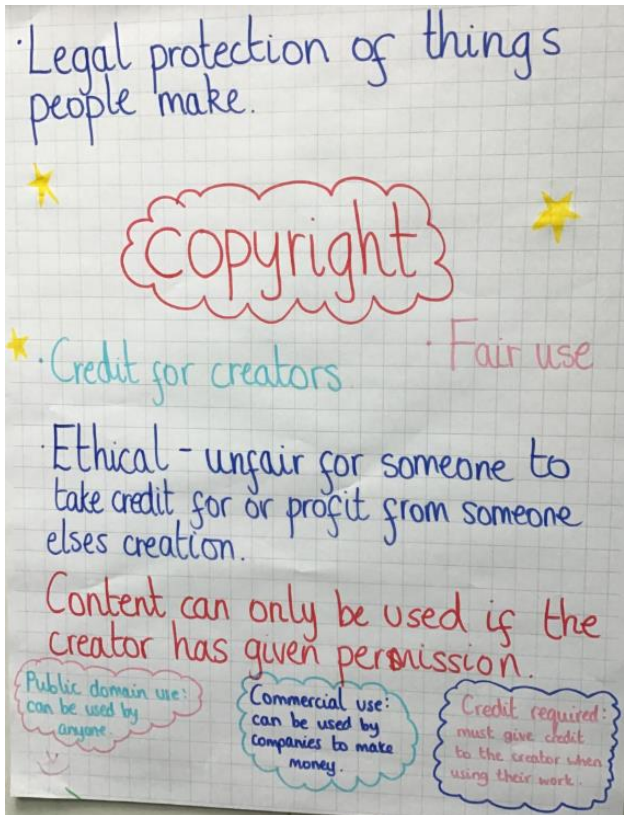 ·Legal protection of things
people make.
copyright
·Credit for creators
·Fair use
·Ethical - unfair for someone to
take credit for or profit from someone
elses creation.
Content can only be used if the
creator has given permission.
Public domain use:
can be used by
anyone.
Commercial use:
can be used by
companies to make
money.
Credit required:
must give credit
to the creator when
using their work.